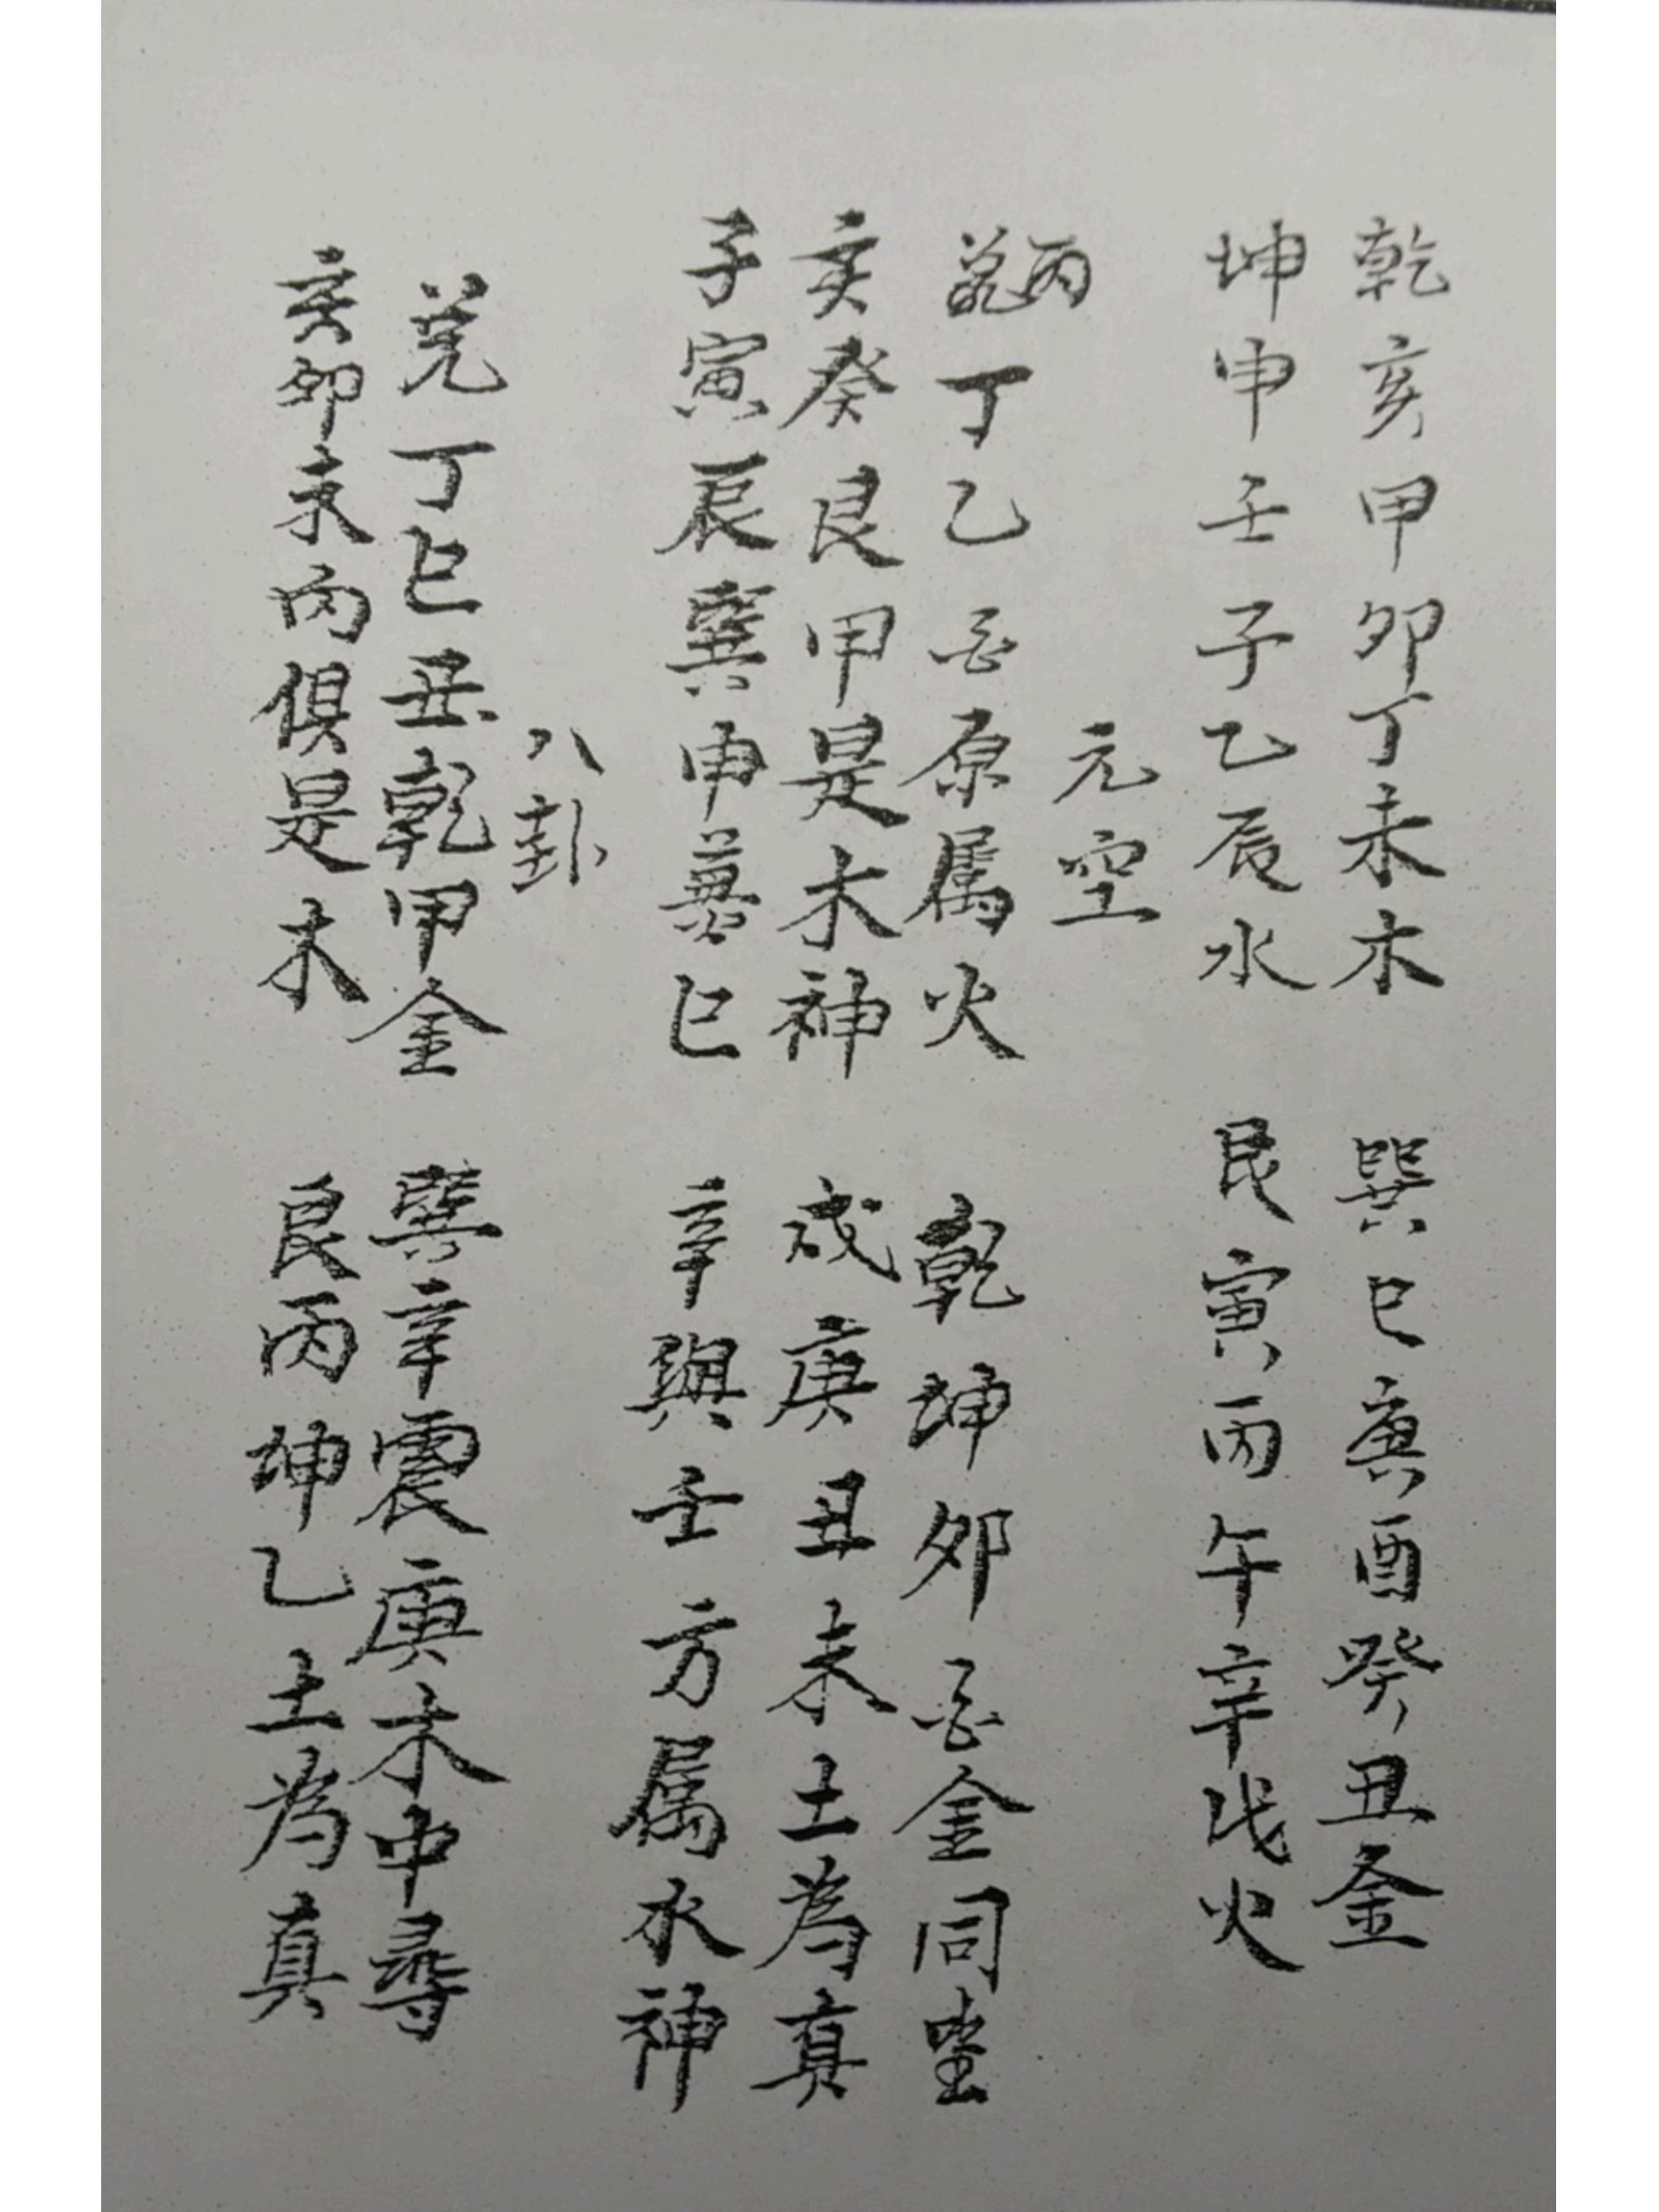 乾亥甲卯丁未木　巽巳庚酉癸丑金
坤申壬子乙辰水　艮寅丙午辛戌火
元空
丙丁乙酉原属火　乾坤卯酉金同坐
亥癸艮甲是木神　戌庚丑未土為真
子寅辰巽申兼巳　辛與壬方属水神
八卦
兑丁巳丑乾甲金　巽辛震庚木中尋
亥卯未内俱是木　艮丙坤乙土為真